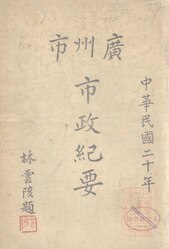 中華民國二十年
廣州市
市政紀要
林雲陔題